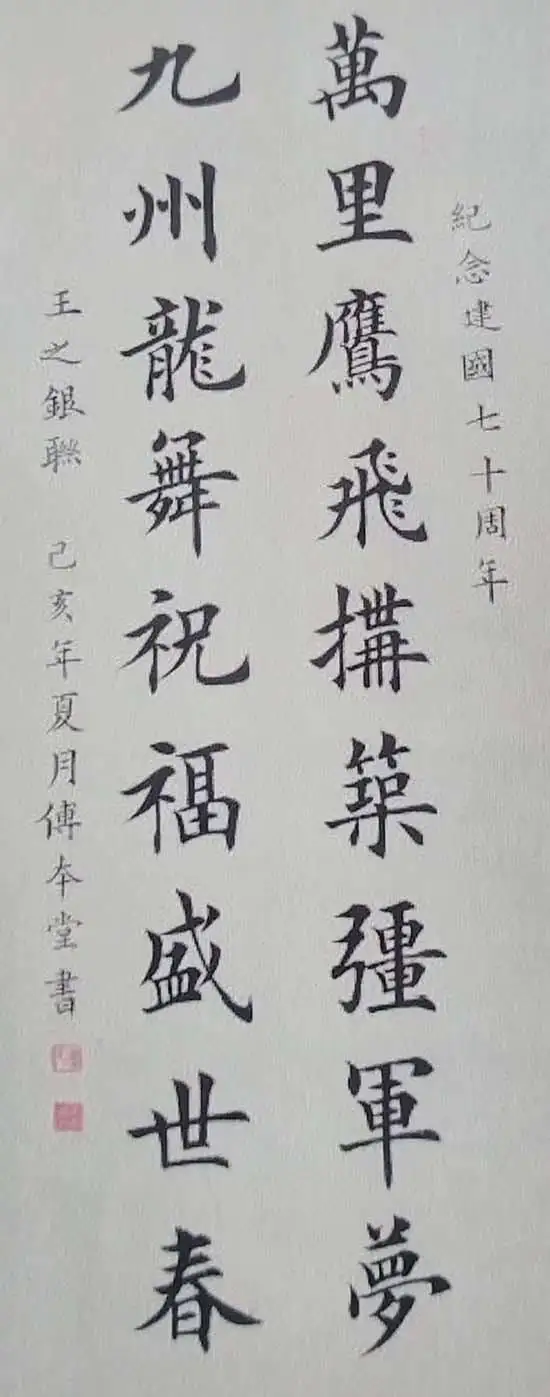 紀念建國七十周年
萬里鷹飛搆築彊軍夢
九州龍舞祝福盛世春
王之銀聯 己亥年夏月傅本堂書